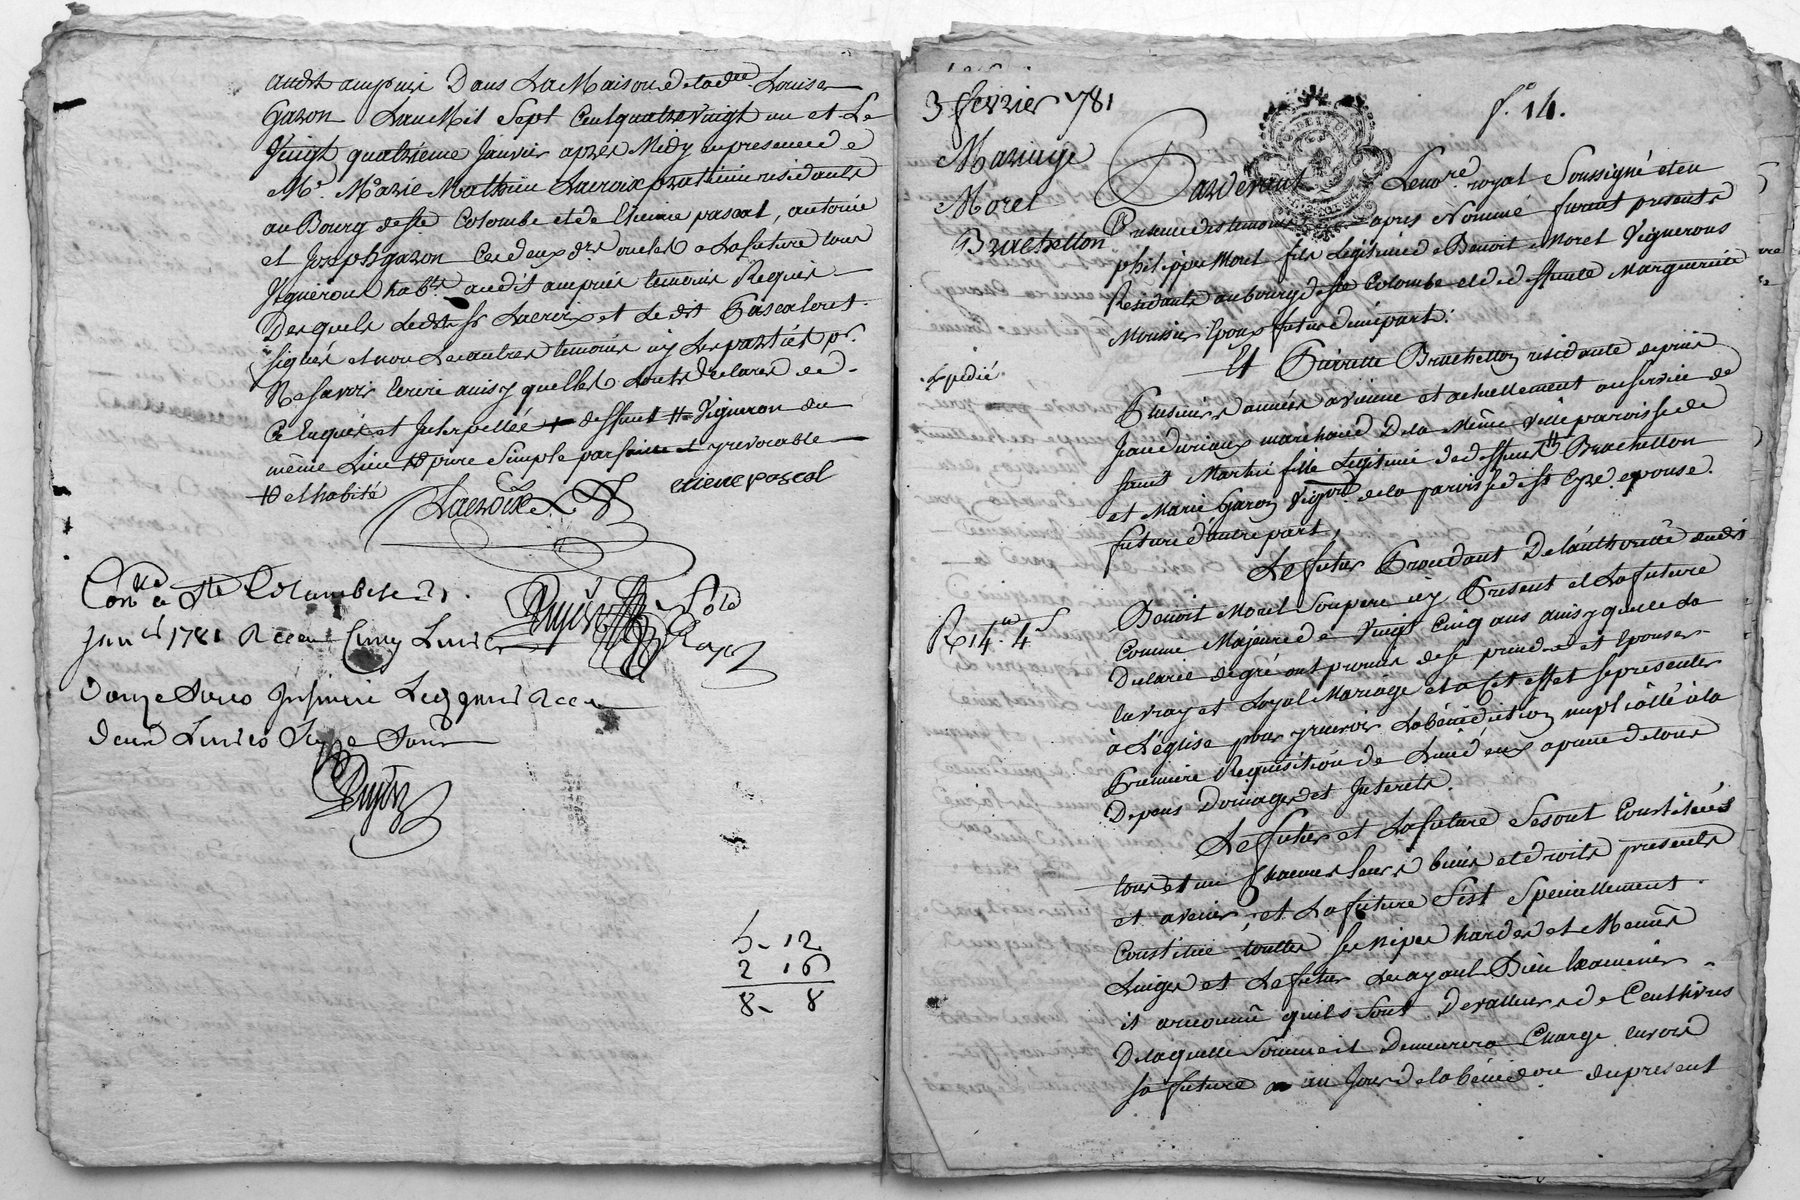 audit ampuie Dans La Maison de lade Louise
Gazon L'an Mil Sept Cent quatre vingt un et Le
Vingt quatrieme Janvier apres Midy en presence de
Me Marie Mathieu Lacroix praticien residante
au Bourg de ste Colombe et de Etienne pascal, antoine
et Joseph gazon Ces deux drs oncles a La future tous
Vignerons habts audit ampuis temoins Requis
Desquels Ledit sr Lacroix et Le dit Pascal ont
signés et non Les autres temoins ny Les parties pr
Ne savoir Ecrire ainsy quelles L'ont Declaré de
Ce Enquis et Interpellée + deffunt # Vigneron du
même Lieu # pure Simple parfaite et yrevocable
# et habité
Lacroix etiene pascal
Conlé a Ste Colombe Le 31
Janer 1781 Reçeu Cinq Livres
Douze Sols Insinué Led jour Reçeu
deux Livres Seize Sols
5- 12
2 16
8- 8
3 fevrier 1781
f° 14.
Mariage
Morel
Brachetton
Expedié
R 14 4 s
Pardevant Le nore royal Soussigné et en
Presence des temoins apres Nommé furent presents
philippe Morel fils Legitime de Benoit Morel Vignerons
Residants au bourg de ste Colombe et de deffunte Marguerite
Mounier Epoux futur d'une part.
Et Pierrette Brachetton residante depuis
Plusieurs années a vienne et actuellement au service de
Jean duvieux marchand De la Même Ville paroisse de
saint Martin fille Legitime de deffunt # Brachetton
et Marie Gazon Vigon de la paroisse de st Cyr epouse
future d'autre part,
Le futur Procedant De L'authorité dudit
Benoit Morel Son pere icy Present et La future
Comme Majeure de Vingt Cinq ans ainsy quelle La
Declaré de gré ont promis de se prendre et Epouser
En vray et Loyal Mariage et a Cet effet se presenter
à L'église pour y recevoir La bénédiction nuptialle à la
Premiere Requisition de L'un d'eux a peine de tous
Depens Domages et Interets.
Le futur et La future Se sont Constitués
tous et un Chacuns Leurs biens et droits presents
et avenir et La future S'est Specialement
Constitué touttes ses nipes hardes et Menus
Linges et Le futur Les ayant Bien Examiner
il a reconnu quils Sont De valleur de Cent livres
De laquelle Somme il Demeurera Chargé envers
sa future au Jour de la béned on du present